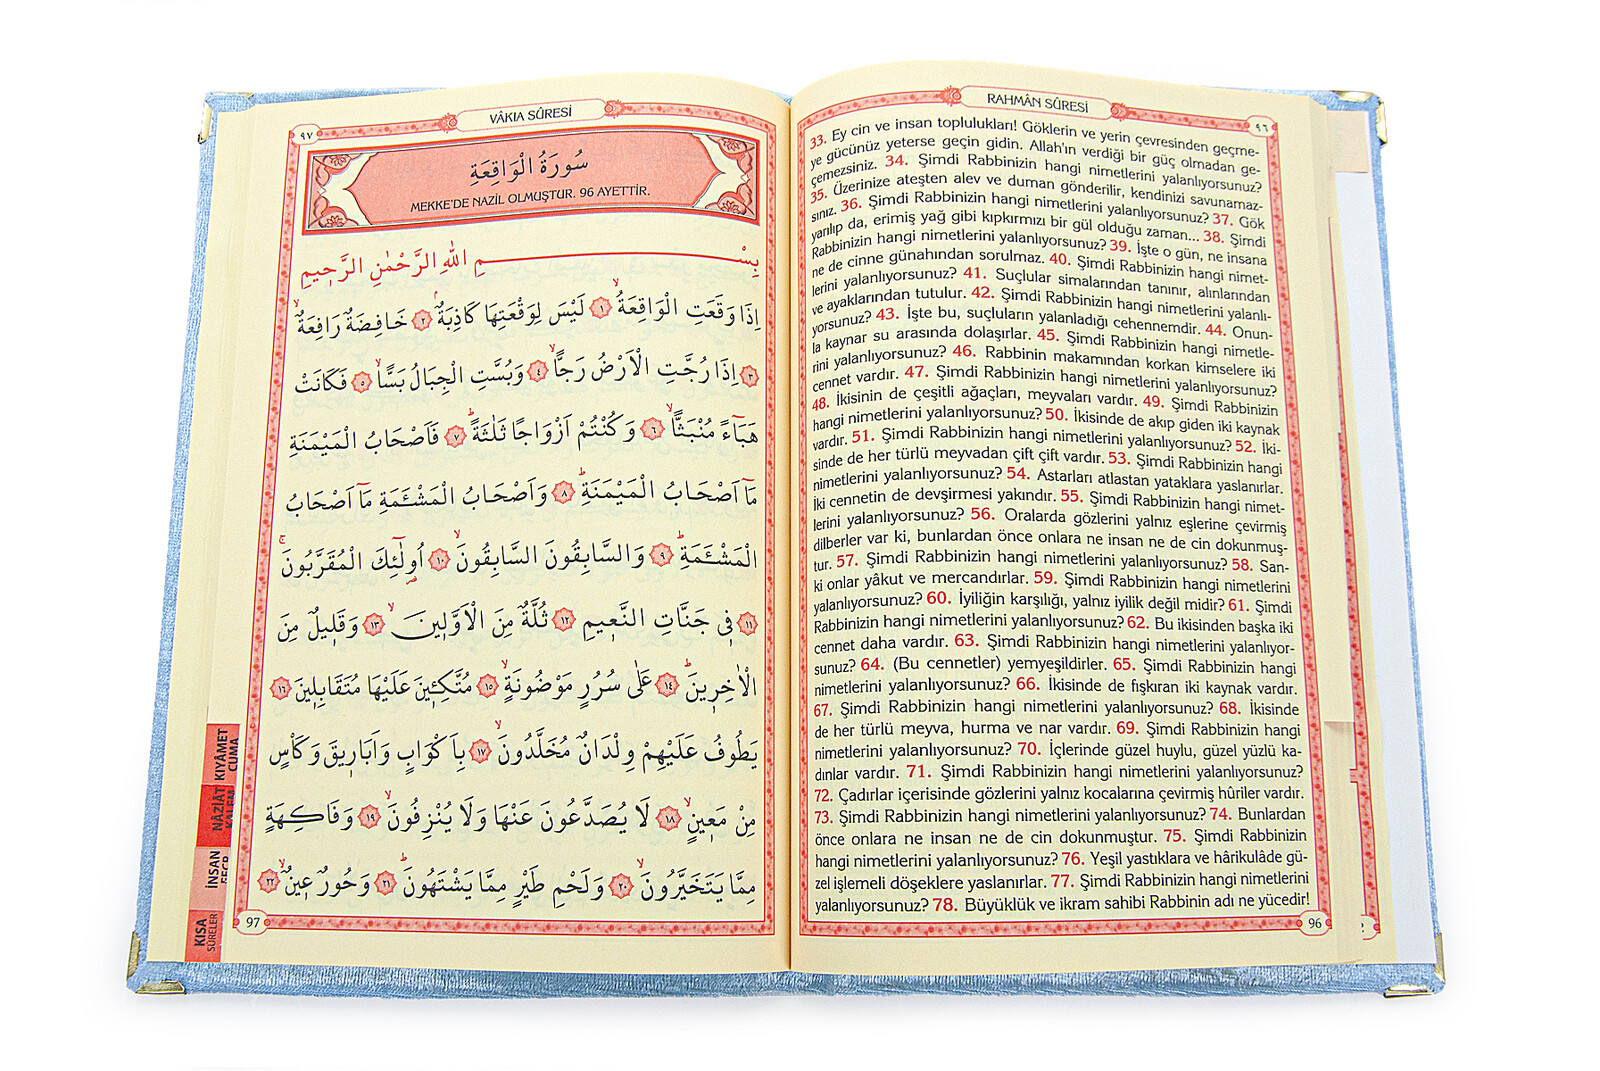 RAHMÂN SÛRESİ
٩٦
33. Ey cin ve insan toplulukları! Göklerin ve yerin çevresinden geçme-
ye gücünüz yeterse geçin gidin. Allah'ın verdiği bir güç olmadan ge-
çemezsiniz. 34. Şimdi Rabbinizin hangi nimetlerini yalanlıyorsunuz?
35. Üzerinize ateşten alev ve duman gönderilir, kendinizi savunamaz-
sınız. 36. Şimdi Rabbinizin hangi nimetlerini yalanlıyorsunuz? 37. Gök
yarılıp da, erimiş yağ gibi kıpkırmızı bir gül olduğu zaman... 38. Şimdi
Rabbinizin hangi nimetlerini yalanlıyorsunuz? 39. İşte o gün, ne insana
ne de cinne günahından sorulmaz. 40. Şimdi Rabbinizin hangi nimet-
lerini yalanlıyorsunuz? 41. Suçlular simalarından tanınır, alınlarından
ve ayaklarından tutulur. 42. Şimdi Rabbinizin hangi nimetlerini yalanlı-
yorsunuz? 43. İşte bu, suçluların yalanladığı cehennemdir. 44. Onun-
la kaynar su arasında dolaşırlar. 45. Şimdi Rabbinizin hangi nimetle-
rini yalanlıyorsunuz? 46. Rabbinin makamından korkan kimselere iki
cennet vardır. 47. Şimdi Rabbinizin hangi nimetlerini yalanlıyorsunuz?
48. İkisinin de çeşitli ağaçları, meyvaları vardır. 49. Şimdi Rabbinizin
hangi nimetlerini yalanlıyorsunuz? 50. İkisinde de akıp giden iki kaynak
vardır. 51. Şimdi Rabbinizin hangi nimetlerini yalanlıyorsunuz? 52. İki-
sinde de her türlü meyvadan çift çift vardır. 53. Şimdi Rabbinizin hangi
nimetlerini yalanlıyorsunuz? 54. Astarları atlastan yataklara yaslanırlar.
İki cennetin de devşirmesi yakındır. 55. Şimdi Rabbinizin hangi nimet-
lerini yalanlıyorsunuz? 56. Oralarda gözlerini yalnız eşlerine çevirmiş
dilberler var ki, bunlardan önce onlara ne insan ne de cin dokunmuş-
tur. 57. Şimdi Rabbinizin hangi nimetlerini yalanlıyorsunuz? 58. San-
ki onlar yâkut ve mercandırlar. 59. Şimdi Rabbinizin hangi nimetlerini
yalanlıyorsunuz? 60. İyiliğin karşılığı, yalnız iyilik değil midir? 61. Şimdi
Rabbinizin hangi nimetlerini yalanlıyorsunuz? 62. Bu ikisinden başka iki
cennet daha vardır. 63. Şimdi Rabbinizin hangi nimetlerini yalanlıyor-
sunuz? 64. (Bu cennetler) yemyeşildirler. 65. Şimdi Rabbinizin hangi
nimetlerini yalanlıyorsunuz? 66. İkisinde de fışkıran iki kaynak vardır.
67. Şimdi Rabbinizin hangi nimetlerini yalanlıyorsunuz? 68. İkisinde
de her türlü meyva, hurma ve nar vardır. 69. Şimdi Rabbinizin hangi
nimetlerini yalanlıyorsunuz? 70. İçlerinde güzel huylu, güzel yüzlü ka-
dınlar vardır. 71. Şimdi Rabbinizin hangi nimetlerini yalanlıyorsunuz?
72. Çadırlar içerisinde gözlerini yalnız kocalarına çevirmiş hûriler vardır.
73. Şimdi Rabbinizin hangi nimetlerini yalanlıyorsunuz? 74. Bunlardan
önce onlara ne insan ne de cin dokunmuştur. 75. Şimdi Rabbinizin
hangi nimetlerini yalanlıyorsunuz? 76. Yeşil yastıklara ve hârikulâde gü-
zel işlemeli döşeklere yaslanırlar. 77. Şimdi Rabbinizin hangi nimetlerini
yalanlıyorsunuz? 78. Büyüklük ve ikram sahibi Rabbinin adı ne yücedir!
96
VÂKIA SÛRESİ
٩٧
سُورَةُ الْوَاقِعَةِ
MEKKE'DE NAZİL OLMUŞTUR. 96 AYETTİR.
بِسْمِ اللّٰهِ الرَّحْمٰنِ الرَّح۪يمِ
اِذَا وَقَعَتِ الْوَاقِعَةُۙ ﴿١﴾ لَيْسَ لِوَقْعَتِهَا كَاذِبَةٌۢ ﴿٢﴾ خَافِضَةٌ رَافِعَةٌۙ
﴿٣﴾ اِذَا رُجَّتِ الْاَرْضُ رَجًّاۙ ﴿٤﴾ وَبُسَّتِ الْجِبَالُ بَسًّاۙ ﴿٥﴾ فَكَانَتْ
هَبَٓاءً مُنْبَثًّاۙ ﴿٦﴾ وَكُنْتُمْ اَزْوَاجًا ثَلٰثَةًۜ ﴿٧﴾ فَاَصْحَابُ الْمَيْمَنَةِ
مَٓا اَصْحَابُ الْمَيْمَنَةِۜ ﴿٨﴾ وَاَصْحَابُ الْمَشْـَٔمَةِ مَٓا اَصْحَابُ
الْمَشْـَٔمَةِۜ ﴿٩﴾ وَالسَّابِقُونَ السَّابِقُونَۙ ﴿١٠﴾ اُو۬لٰٓئِكَ الْمُقَرَّبُونَۚ
﴿١١﴾ ف۪ي جَنَّاتِ النَّع۪يمِ ﴿١٢﴾ ثُلَّةٌ مِنَ الْاَوَّل۪ينَۙ ﴿١٣﴾ وَقَل۪يلٌ مِنَ
الْاٰخِر۪ينَۜ ﴿١٤﴾ عَلٰى سُرُرٍ مَوْضُونَةٍۙ ﴿١٥﴾ مُتَّكِـ۪ٔينَ عَلَيْهَا مُتَقَابِل۪ينَ ﴿١٦﴾
يَطُوفُ عَلَيْهِمْ وِلْدَانٌ مُخَلَّدُونَۙ ﴿١٧﴾ بِاَكْوَابٍ وَاَبَار۪يقَ وَكَأْسٍ
مِنْ مَع۪ينٍۙ ﴿١٨﴾ لَا يُصَدَّعُونَ عَنْهَا وَلَا يُنْزِفُونَۙ ﴿١٩﴾ وَفَاكِهَةٍ
مِمَّا يَتَخَيَّرُونَۙ ﴿٢٠﴾ وَلَحْمِ طَيْرٍ مِمَّا يَشْتَهُونَۜ ﴿٢١﴾ وَحُورٌ ع۪ينٌۙ ﴿٢٢﴾
97
KIYÂMET
CUMA
NÂZİÂT
KALEM
İNSAN
FECR
KISA
SÛRELER